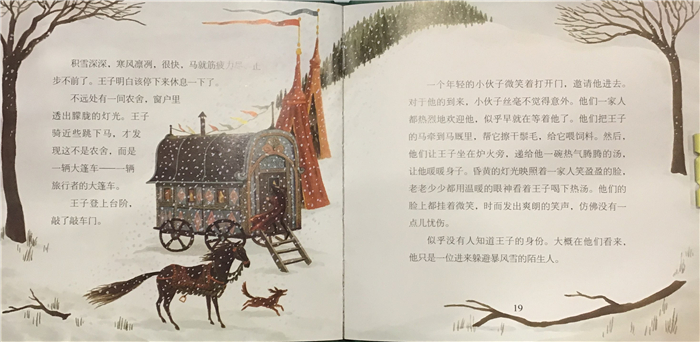 积雪深深，寒风凛冽，很快，马就筋疲力尽，止
步不前了。王子明白该停下来休息一下了。
不远处有一间农舍，窗户里
透出朦胧的灯光。王子
骑近些跳下马，才发
现这不是农舍，而是
一辆大篷车——一辆
旅行者的大篷车。
王子登上台阶，
敲了敲车门。
一个年轻的小伙子微笑着打开门，邀请他进去。
对于他的到来，小伙子丝毫不觉得意外。他们一家人
都热烈地欢迎他，似乎早就在等着他了。他们把王子
的马牵到马厩里，帮它擦干鬃毛，给它喂饲料。然后，
他们让王子坐在炉火旁，递给他一碗热气腾腾的汤，
让他暖暖身子。昏黄的灯光映照着一家人笑盈盈的脸，
老老少少都用温暖的眼神看着王子喝下热汤。他们的
脸上都挂着微笑，时而发出爽朗的笑声，仿佛没有一
点儿忧伤。
似乎没有人知道王子的身份。大概在他们看来，
他只是一位进来躲避暴风雪的陌生人。
19